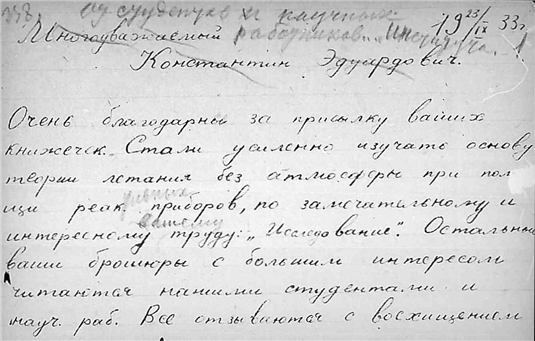 от студентов и научных
работников института.
19 23/IX 33 г.
Многоуважаемый
Константин Эдуардович.
Очень благодарны за присылку ваших
книжечек. Стали усиленно изучать основу
теории летания без атмосферы при пол
щи реак приборов, по замечательному и
вашему
интересному труду: „Исследование". Остальные
ваши брошюры с большим интересом
читаются нашими студентами и
науч. раб. Все отзываются с восхищением